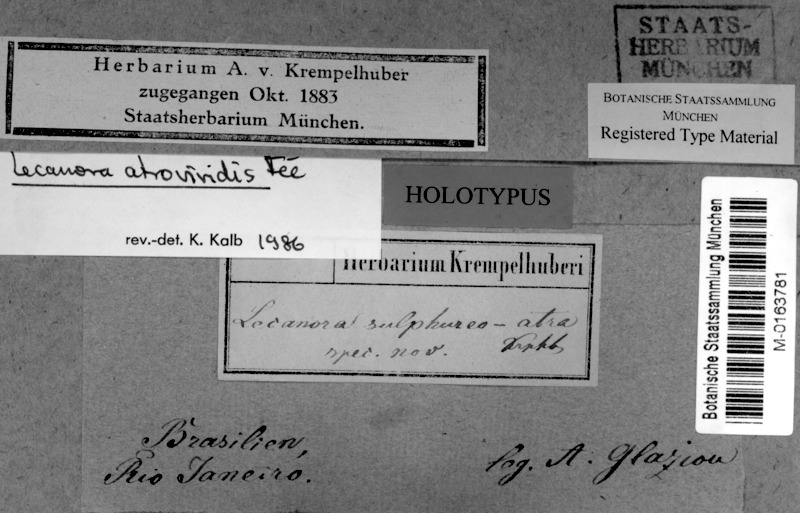 STAATS-
HERBARIUM
MÜNCHEN
Herbarium A. v. Krempelhuber
zugegangen Okt. 1883
Staatsherbarium München.
BOTANISCHE STAATSSAMMLUNG
MÜNCHEN
Registered Type Material
Lecanora atroviridis Fée
rev.-det. K. Kalb 1986
HOLOTYPUS
Botanische Staatssammlung München
M-0163781
Herbarium Krempelhuberi
Lecanora sulphureo-atra
spec. nov. Krphb
Brasilien,
Rio Janeiro.
leg. A. Glaziou